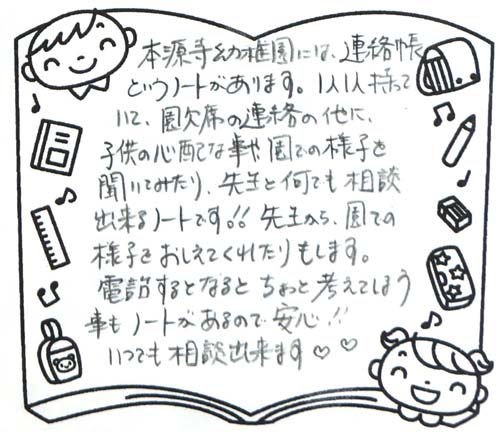 本源寺幼稚園には、連絡帳
というノートがあります。1人1人持って
いて、園欠席の連絡の他に、
子供の心配な事や園での様子を
聞いてみたり、先生と何でも相談
出来るノートです!! 先生から、園での
様子をおしえてくれたりもします。
電話するとなると ちょっと考えてしまう
事も ノートがあるので 安心!!
いつでも相談出来ます♡♡